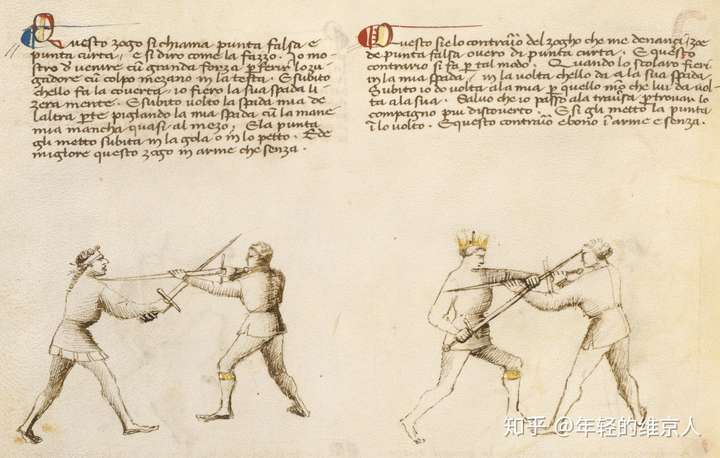 Questo zogo si chiama punta falsa e
punta curta, e si diro come la fazzo. Io mo-
stro d venire cū granda forza p ferir lo zu-
gadore cū colpo mezano in la testa. E subito
ch'ello fa la coverta io fiero la sua spada li-
zeramente. E subito volto la spada mia de
l'altra pte piglando la mia spada cū la mane
mia mancha quasi al mezo. E la punta
gli metto subita in la gola o in lo petto. Ed e
migliore questo zogo in arme che senza.
Questo si e lo contrario del zogho che me denanci, zoe
de punta falsa overo di punta curta. E questo
contrario si fa p tal modo. Quando lo scolaro fieri
in la mia spada, in la volta ch'ello da a la sua spada
Subito io do volta a la mia p quello modo che lui da vol-
ta a la sua. Salvo che io passo a la traversa p trovar lo
compagno piu discoverto. E si gli metto la punta
in lo volto. E questo contrario e bono in arme e senza.
知乎 @年轻的维京人